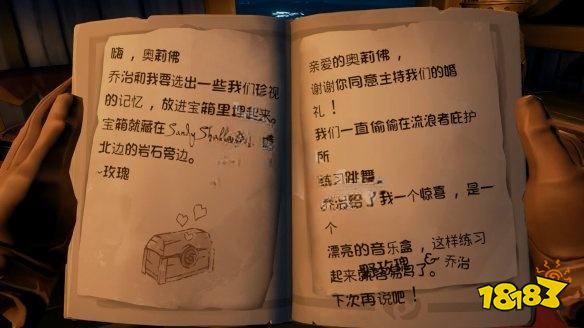 嗨，奥莉佛
乔治和我要选出一些我们珍视
的记忆，放进宝箱里埋起来。
宝箱就藏在Sandy
北边的岩石旁边。
~玫瑰
亲爱的奥莉佛，
谢谢你同意主持我们的婚
礼！
我们一直偷偷在流浪者庇护
所
练习跳舞
乔治给了我一个惊喜，是一
个
漂亮的音乐盒，这样练习
起来就容易多了。
野玫瑰 & 乔治
下次再说吧！
18183